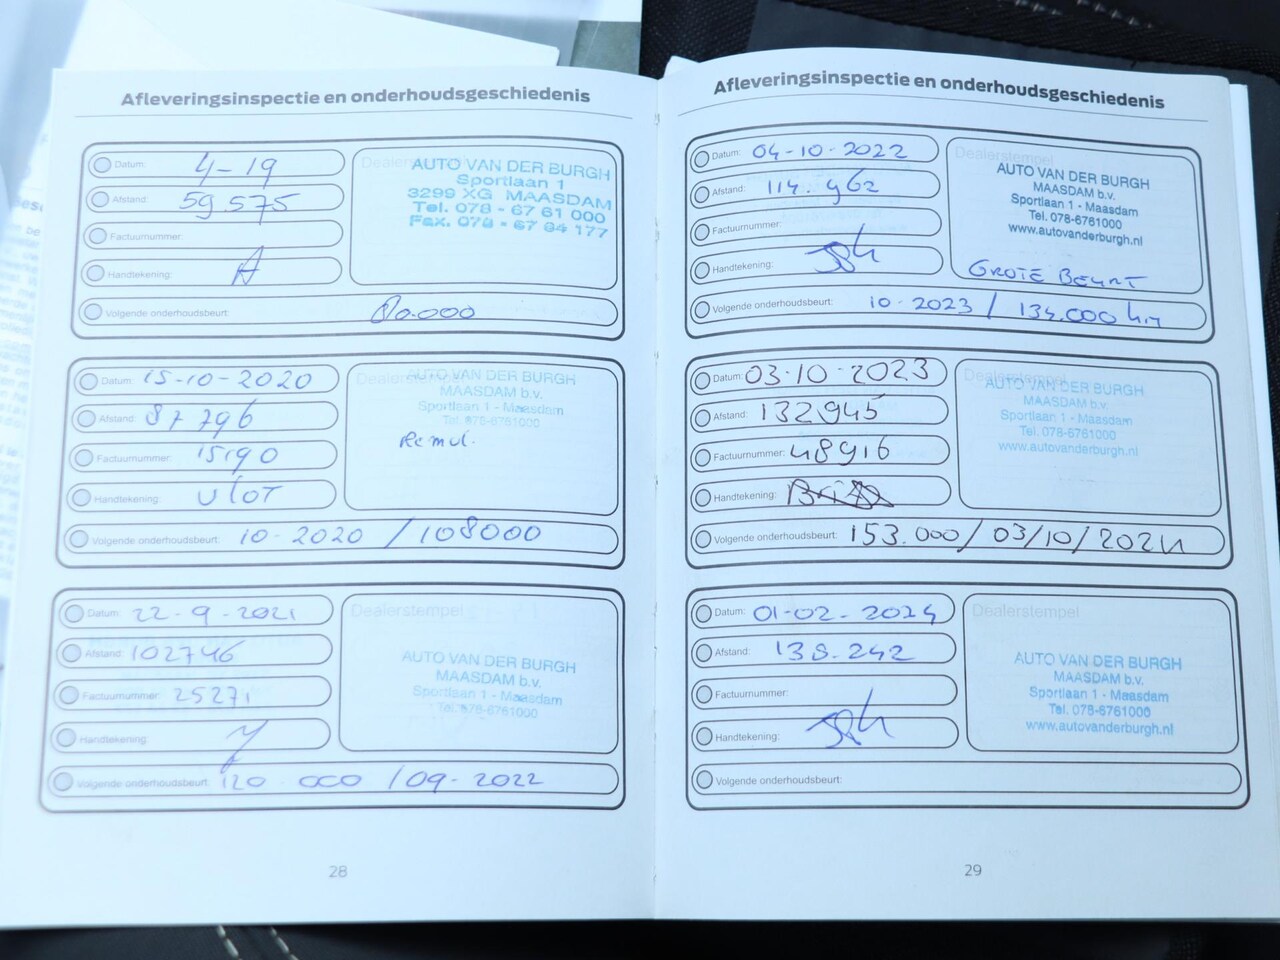 Afleveringsinspectie en onderhoudsgeschiedenis
Datum: 4-19
Afstand: 59.575
Factuurnummer:
Handtekening:
Dealerstempel
AUTO VAN DER BURGH
Sportlaan 1
3299 XG MAASDAM
Tel. 078 - 67 61 000
Fax. 078 - 67 64 177
Volgende onderhoudsbeurt: 80.000
Datum: 15-10-2020
Afstand: 87796
Factuurnummer: 15190
Handtekening: Vlot
Dealerstempel
AUTO VAN DER BURGH
MAASDAM b.v.
Sportlaan 1 - Maasdam
Tel. 078-6761000
Remvl.
Volgende onderhoudsbeurt: 10-2020 / 108000
Datum: 22-9-2021
Afstand: 102746
Factuurnummer: 25271
Handtekening:
Dealerstempel
AUTO VAN DER BURGH
MAASDAM b.v.
Sportlaan 1 - Maasdam
Tel. 078-6761000
Volgende onderhoudsbeurt: 120.000 / 09-2022
28
Afleveringsinspectie en onderhoudsgeschiedenis
Datum: 04-10-2022
Afstand: 114.962
Factuurnummer:
Handtekening:
Dealerstempel
AUTO VAN DER BURGH
MAASDAM b.v.
Sportlaan 1 - Maasdam
Tel. 078-6761000
www.autovanderburgh.nl
GROTE BEURT
Volgende onderhoudsbeurt: 10-2023 / 134.000 km
Datum: 03-10-2023
Afstand: 132945
Factuurnummer: 48916
Handtekening:
Dealerstempel
AUTO VAN DER BURGH
MAASDAM b.v.
Sportlaan 1 - Maasdam
Tel. 078-6761000
www.autovanderburgh.nl
Volgende onderhoudsbeurt: 153.000/03/10/2024
Datum: 01-02-2024
Afstand: 138.242
Factuurnummer:
Handtekening:
Dealerstempel
AUTO VAN DER BURGH
MAASDAM b.v.
Sportlaan 1 - Maasdam
Tel. 078-6761000
www.autovanderburgh.nl
Volgende onderhoudsbeurt:
29